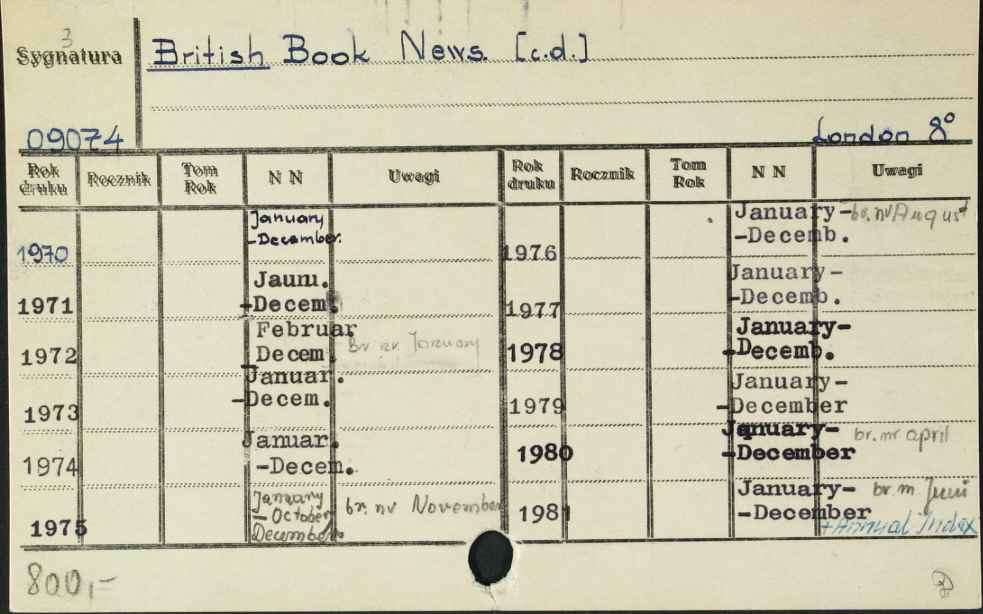 3
Sygnatura British Book News. [c.d.]
09074 London 8°
Rok druku Rocznik Tom Rok N N Uwagi Rok druku Rocznik Tom Rok N N Uwagi
1970 January -December.
1971 Jaunu. -Decem.
1972 Februar Decem Br nr January
1973 Januar. -Decem.
1974 Januar. -Decem.
1975 January - October December br. nr November
1976 January- -Decemb. br. nr August
1977 January- -Decemb.
1978 January- -Decemb.
1979 January- -December
1980 January- -December br. nr april
1981 January- -December br. nr Juni + Annual Index
800,-